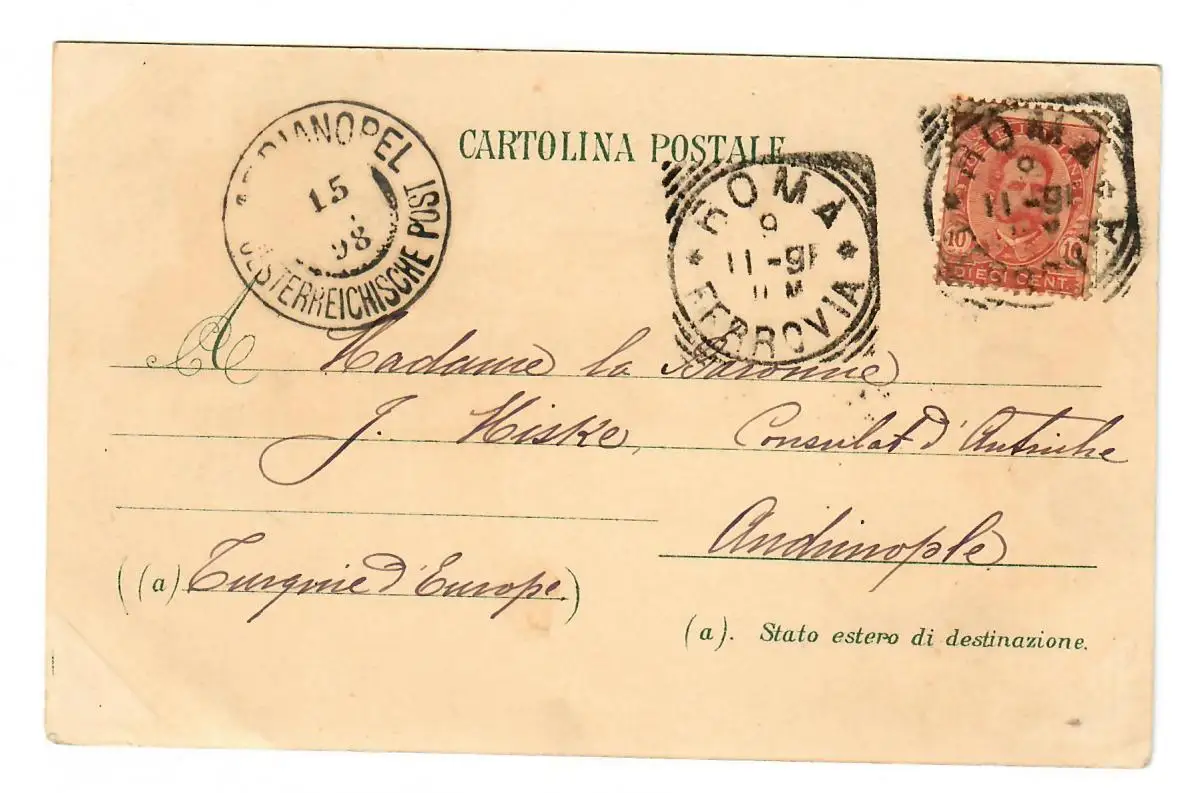 CARTOLINA POSTALE
ADRIANOPEL
15
98
OESTERREICHISCHE POST
ROMA
9
11-98
11 M
FERROVIA
ROMA
9
11-98
FERROVIA
POSTE ITALIANE
10 10
DIECI CENT.
A Madame la Baronne
J. Hiske, Consulat d'Autriche
Andrinople
((a) Turquie d'Europe.)
(a). Stato estero di destinazione.